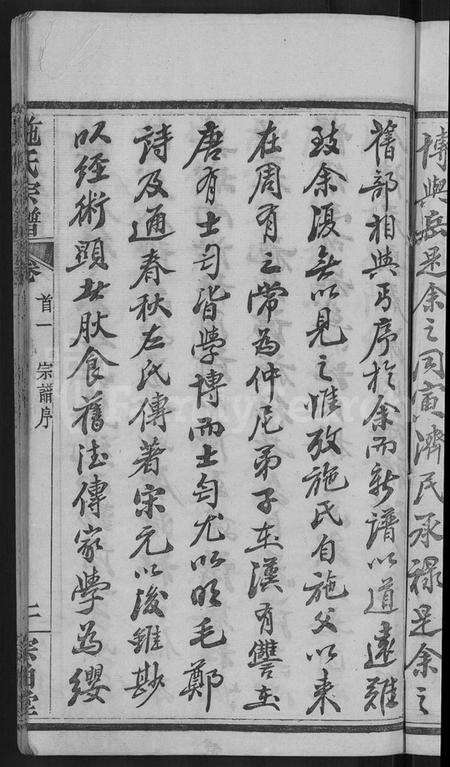 博與兹是余之同寅濟民承祿是余之
舊部相與丐序於余而新譜以道遠難
致余復無以見之惟攷施氏自施父以来
在周有之常為仲尼弟子在漢有讐在
唐有士匄皆學博而士匄尤以明毛鄭
詩及通春秋左氏傳著宋元以後雖尠
以經術顯者猒食舊法傳家學為纓
施氏宗譜 卷首一 宗譜序 二